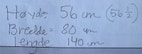 Høyde: 56 cm (56 ½)
Bredde: 80 cm
Lengde 140 cm